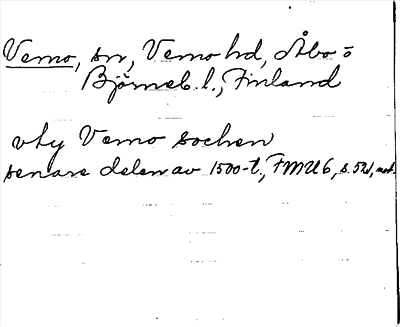 Vemo, sn, Vemo hd, Åbo o
Björneb. l., Finland
vty Vemo sochen
senare delen av 1500-t., FMU 6, s.